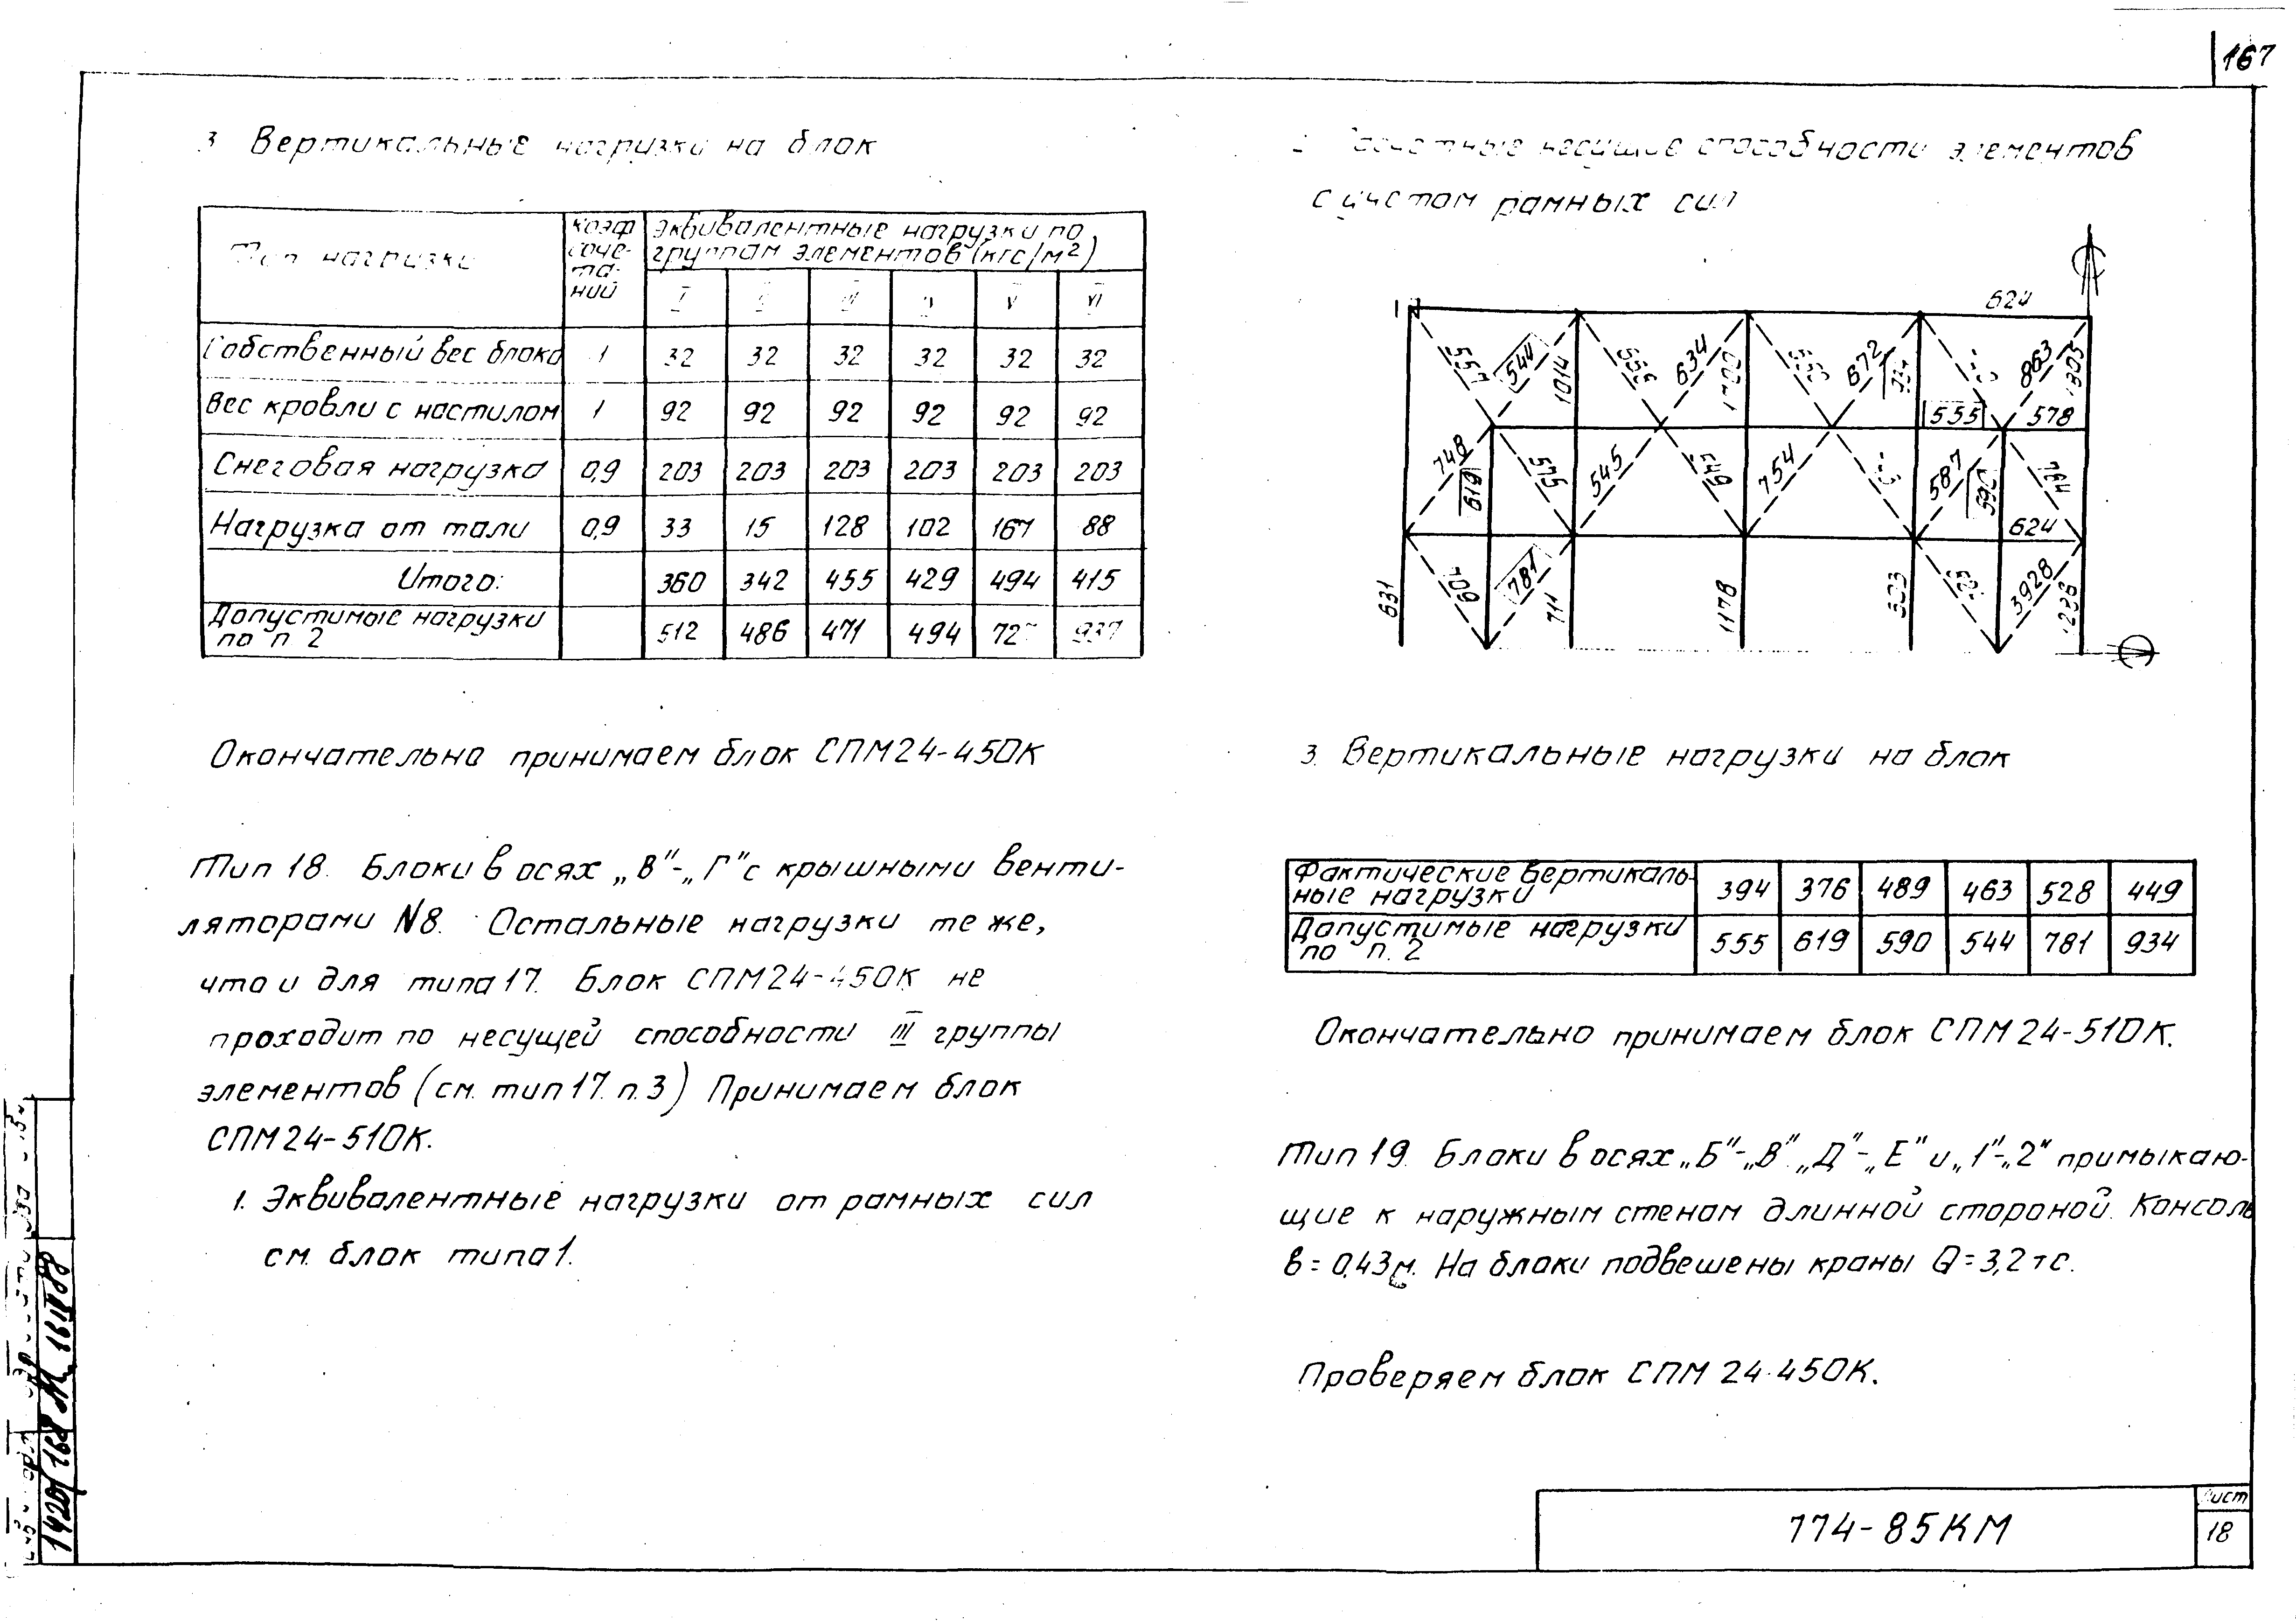 167
3 Вертикальные нагрузки на блок
Тип нагрузки
Коэф. соче- та- ний
Эквивалентные нагрузки по
группам элементов (кгс/м²)
I II III IV V VI
Собственный вес блока 1 32 32 32 32 32 32
Вес кровли с настилом 1 92 92 92 92 92 92
Снеговая нагрузка 0,9 203 203 203 203 203 203
Нагрузка от тали 0,9 33 15 128 102 167 88
Итого: 360 342 455 429 494 415
Допустимые нагрузки
по п 2 512 486 471 494 937
Окончательно принимаем блок СПМ24-450К
Тип 18. Блоки в осях „В"-„Г" с крышными венти-
ляторами N8. Остальные нагрузки те же,
что и для типа 17. Блок СПМ24-450К не
проходит по несущей способности III группы
элементов (см. тип 17. п.3) Принимаем блок
СПМ24-510К.
1. Эквивалентные нагрузки от рамных сил
см. блок типа 1.
несущие способности элементов
с учетом рамных сил
624
557 544 1014 556 634 672 863
555 578
748 619 575 545 549 754 587 590 764
624
631 709 781 711 1178 533 3928
3. Вертикальные нагрузки на блок
Фактические вертикаль-
ные нагрузки 394 376 489 463 528 449
Допустимые нагрузки
по п. 2 555 619 590 544 781 934
Окончательно принимаем блок СПМ24-510К.
Тип 19. Блоки в осях „Б"-„В" „Д"-„Е" и „1"-„2" примыкаю-
щие к наружным стенам длинной стороной. Консоль
в = 0,43м. На блоки подвешены краны Q = 3,2 тс.
Проверяем блок СПМ 24-450К.
774-85КМ
Лист
18
1420/168